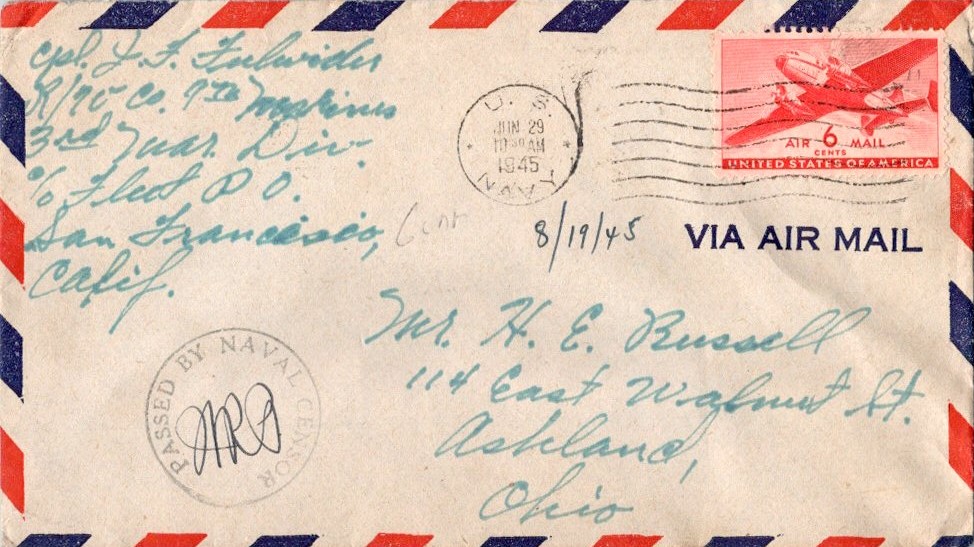 Cpl. L. F. Fulwider
R/95 Co. 9th Marines
3rd Mar. Div.
c/o Fleet P O.
San Francisco,
Calif.
U. S.
JUN 29
10 AM
1945
NAVY
AIR 6 MAIL
CENTS
UNITED STATES OF AMERICA
8/19/45
VIA AIR MAIL
Mr. H. E. Russell
114 East Walnut St.
Ashland,
Ohio
PASSED BY NAVAL CENSOR